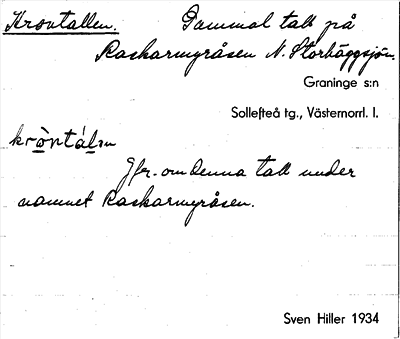 Krontallen. Gammal tall på
Raskarmyråsen N. Storhäggsjön.
Graninge s:n
Sollefteå tg., Västernorrl. l.
Jfr. om denna tall under
namnet Raskarmyråsen.
Sven Hiller 1934